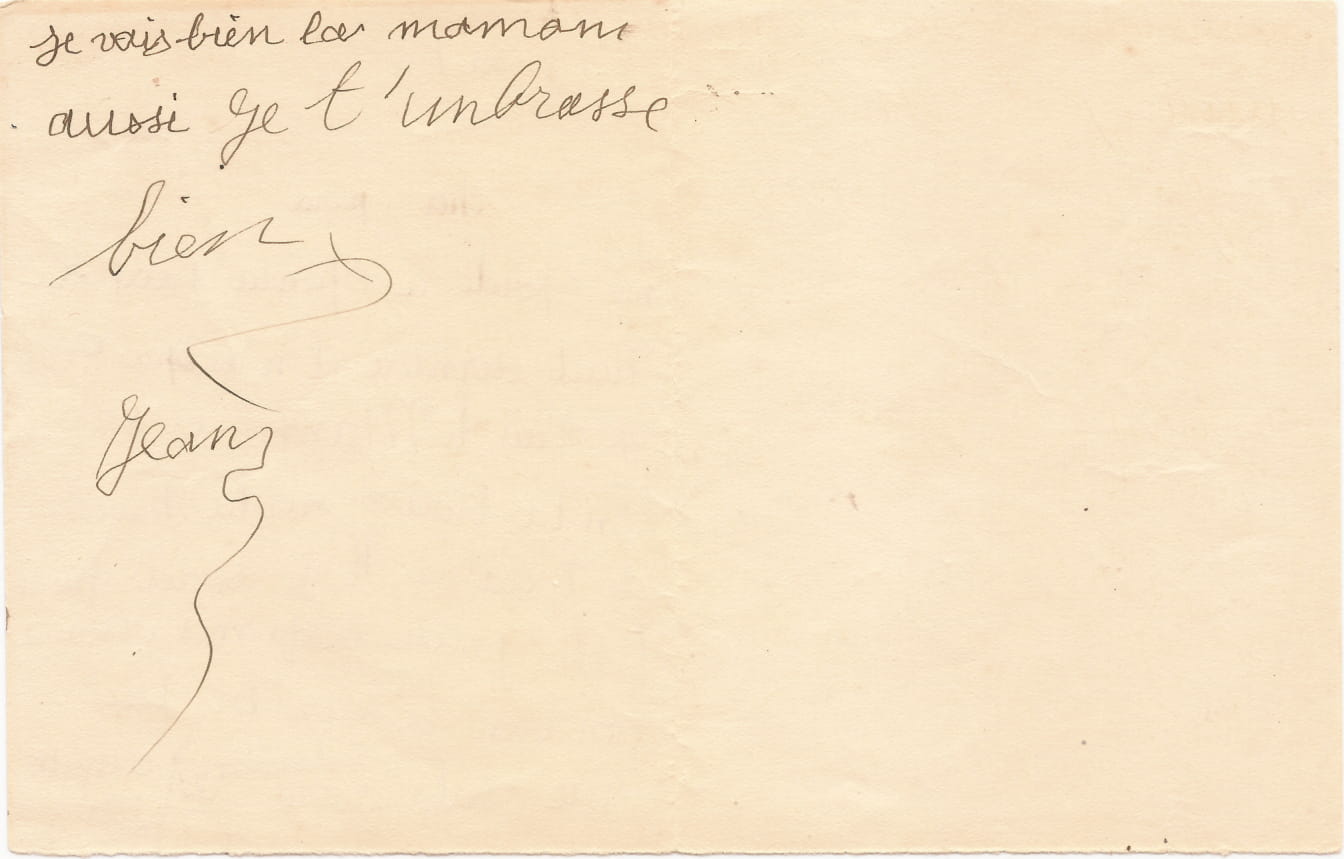 je vais bien la maman
aussi Je t'unbrasse
bien
Jean